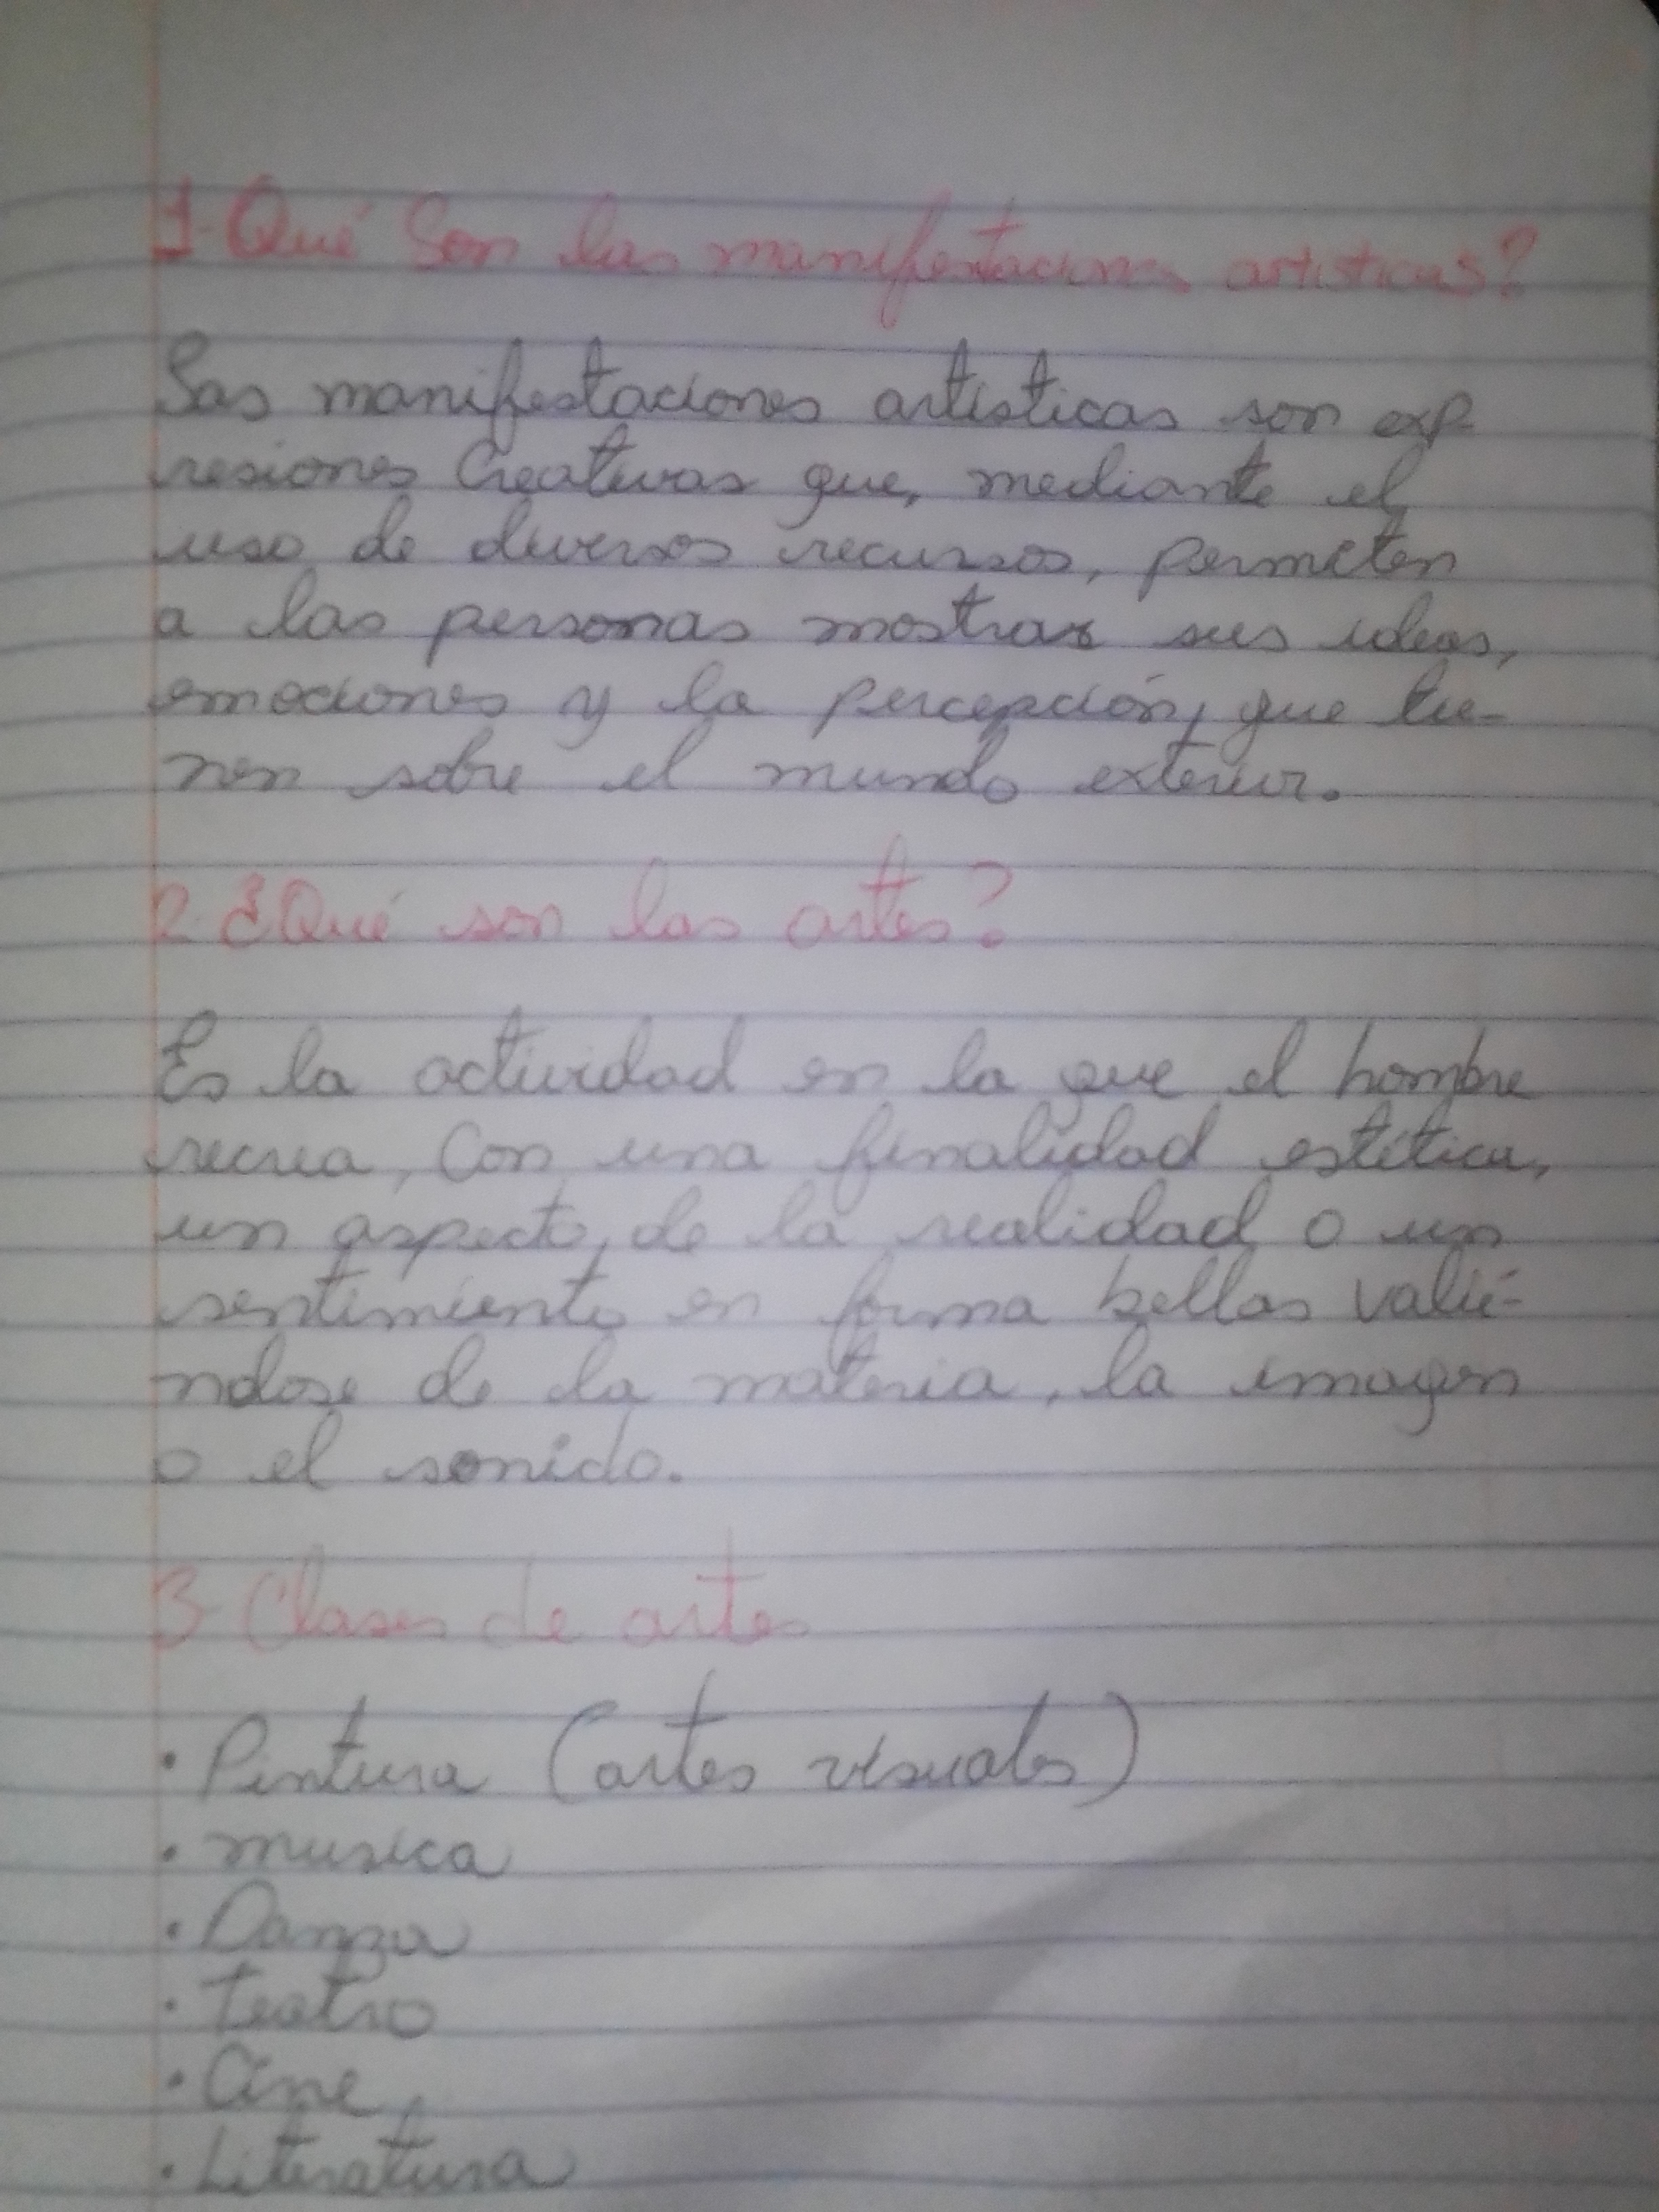 1-Qué Son las manifestaciones artisticas?
Las manifestaciones artísticas son exp-
resiones Creativas que, mediante el
uso de diversos recursos, permiten
a las personas mostrar sus ideas,
emociones y la percepción, que tie-
nen sobre el mundo exterior.
2-¿Qué son las artes?
Es la actividad en la que el hombre
recrea, Con una finalidad estética,
un aspecto, de la realidad o un
sentimiento en forma bellas valié-
ndose de la materia, la imagen
o el sonido.
3-Clases de artes
• Pintura (artes visuales)
• musica
• Danza
• Teatro
• Cine
• Literatura